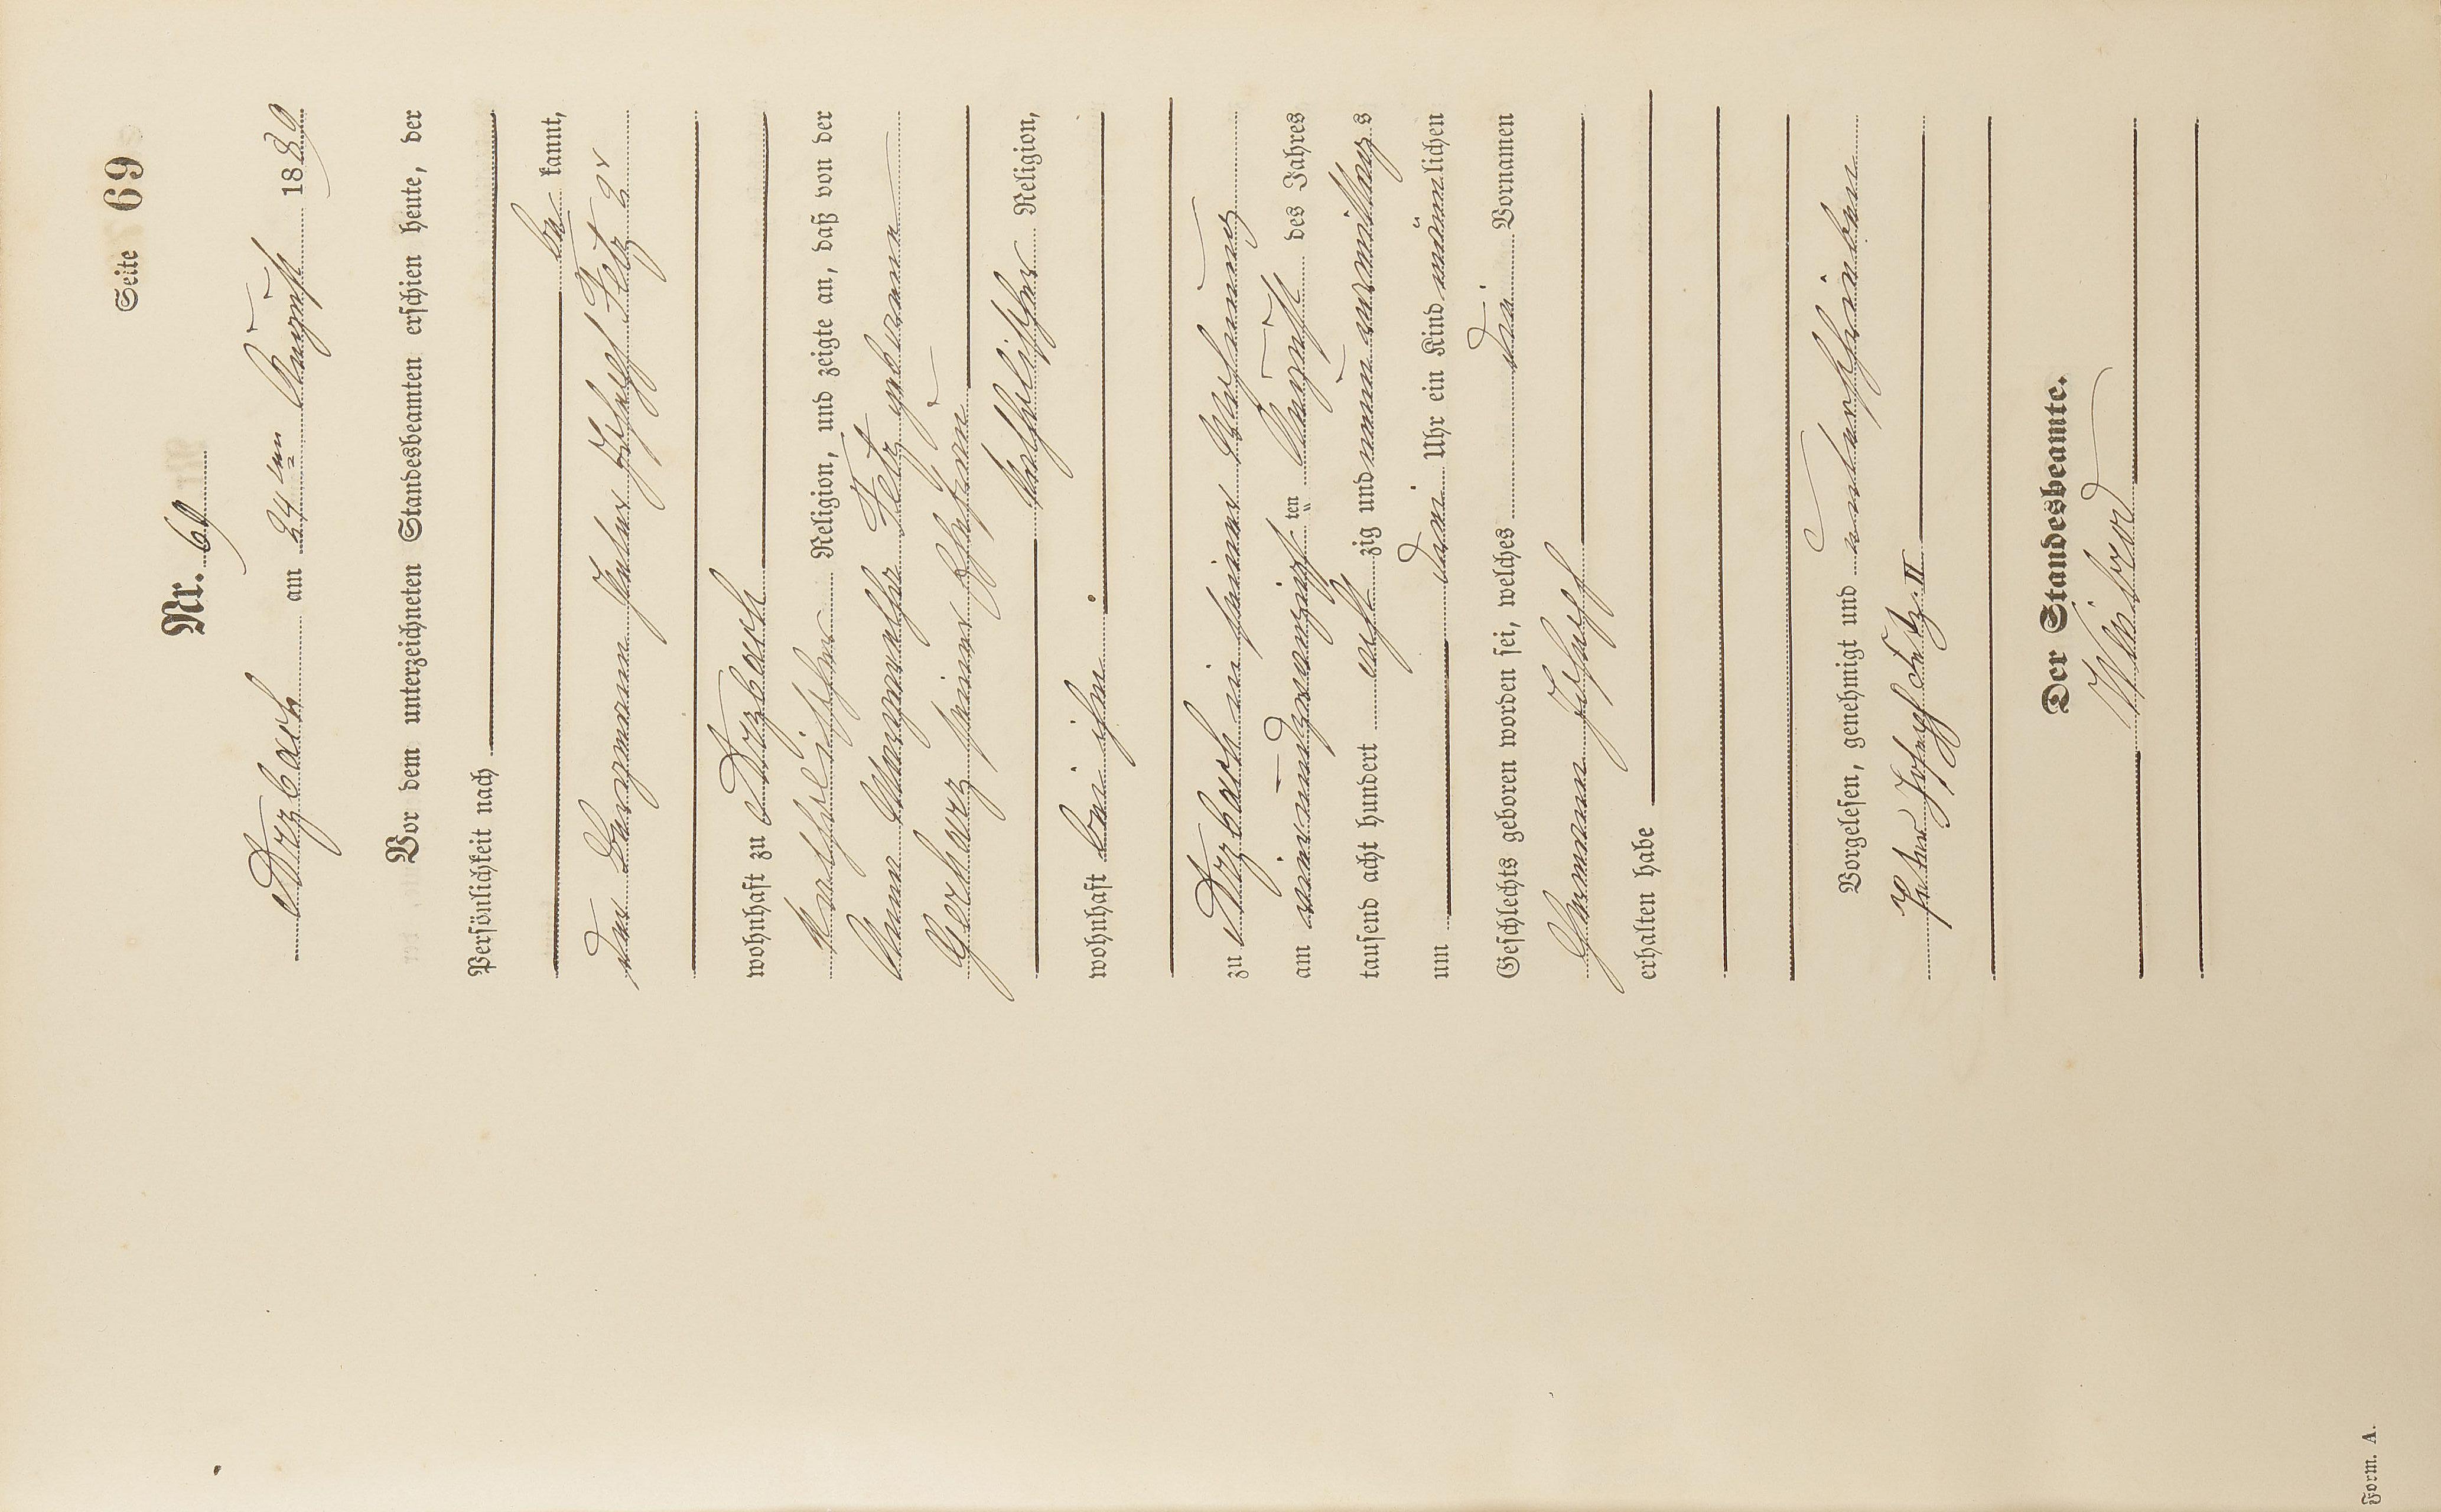 Seite 69
Nr. 69
Arzbach am 24ten August 1889
Vor dem unterzeichneten Standesbeamten erschien heute, der
Persönlichkeit nach
be kannt,
der Bergmann Peter Joseph Fetz 2r
wohnhaft zu Arzbach
katholischer Religion, und zeigte an, daß von der
Anna Margaretha Fetz geborenen
Gerharz seiner Ehefrau
katholischer Religion,
wohnhaft bei ihm
zu Arzbach in seiner Wohnung
am vierundzwanzigsten August des Jahres
tausend acht hundert acht zig und neun vormittags
um drei Uhr ein Kind männlichen
Geschlechts geboren worden sei, welches die Vornamen
Hermann Joseph
erhalten habe
Vorgelesen, genehmigt und unterschrieben
Peter Joseph Fetz II
Der Standesbeamte.
Form. A.